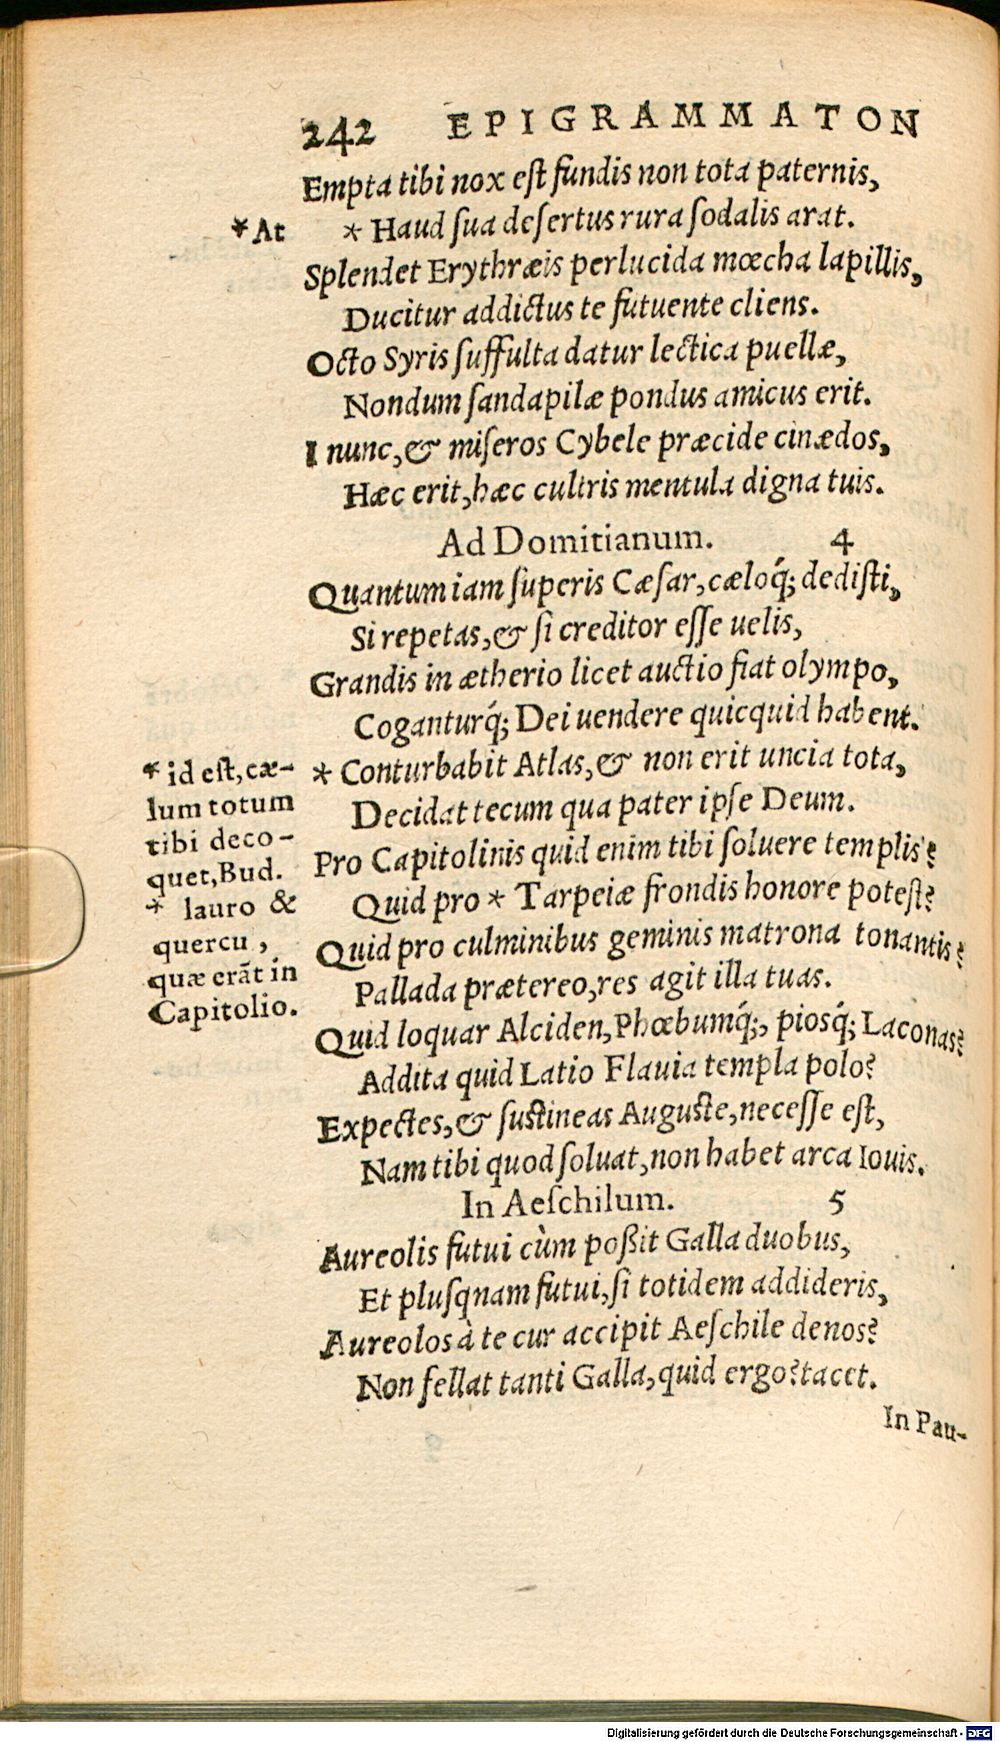 242 EPIGRAMMATON
Empta tibi nox est fundis non tota paternis,
*At
* Haud sua desertus rura sodalis arat.
Splendet Erythræis perlucida mœcha lapillis,
Ducitur addictus te futuente cliens.
Octo Syris suffulta datur lectica puellæ,
Nondum sandapilæ pondus amicus erit.
I nunc, & miseros Cybele præcide cinædos,
Hæc erit, hæc cultris mentula digna tuis.
Ad Domitianum. 4
Quantum iam superis Cæsar, cæloq́; dedisti,
Si repetas, & si creditor esse uelis,
Grandis in ætherio licet auctio fiat olympo,
Coganturq́; Dei uendere quicquid habent.
* Conturbabit Atlas, & non erit uncia tota,
Decidat tecum qua pater ipse Deum.
Pro Capitolinis quid enim tibi soluere templis?
Quid pro * Tarpeiæ frondis honore potest?
Quid pro culminibus geminis matrona tonantis?
Pallada prætereo, res agit illa tuas.
Quid loquar Alciden, Phœbumq́;, piosq́; Laconas?
Addita quid Latio Flauia templa polo?
Expectes, & sustineas Auguste, necesse est,
Nam tibi quod soluat, non habet arca Iouis.
* id est, cæ-
lum totum
tibi deco-
quet, Bud.
* lauro &
quercu,
quæ erãt in
Capitolio.
In Aeschilum. 5
Aureolis futui cùm poßit Galla duobus,
Et plusqnam futui, si totidem addideris,
Aureolos à te cur accipit Aeschile denos?
Non fellat tanti Galla, quid ergo? tacet.
In Pau-
Digitalisierung gefördert durch die Deutsche Forschungsgemeinschaft - DFG